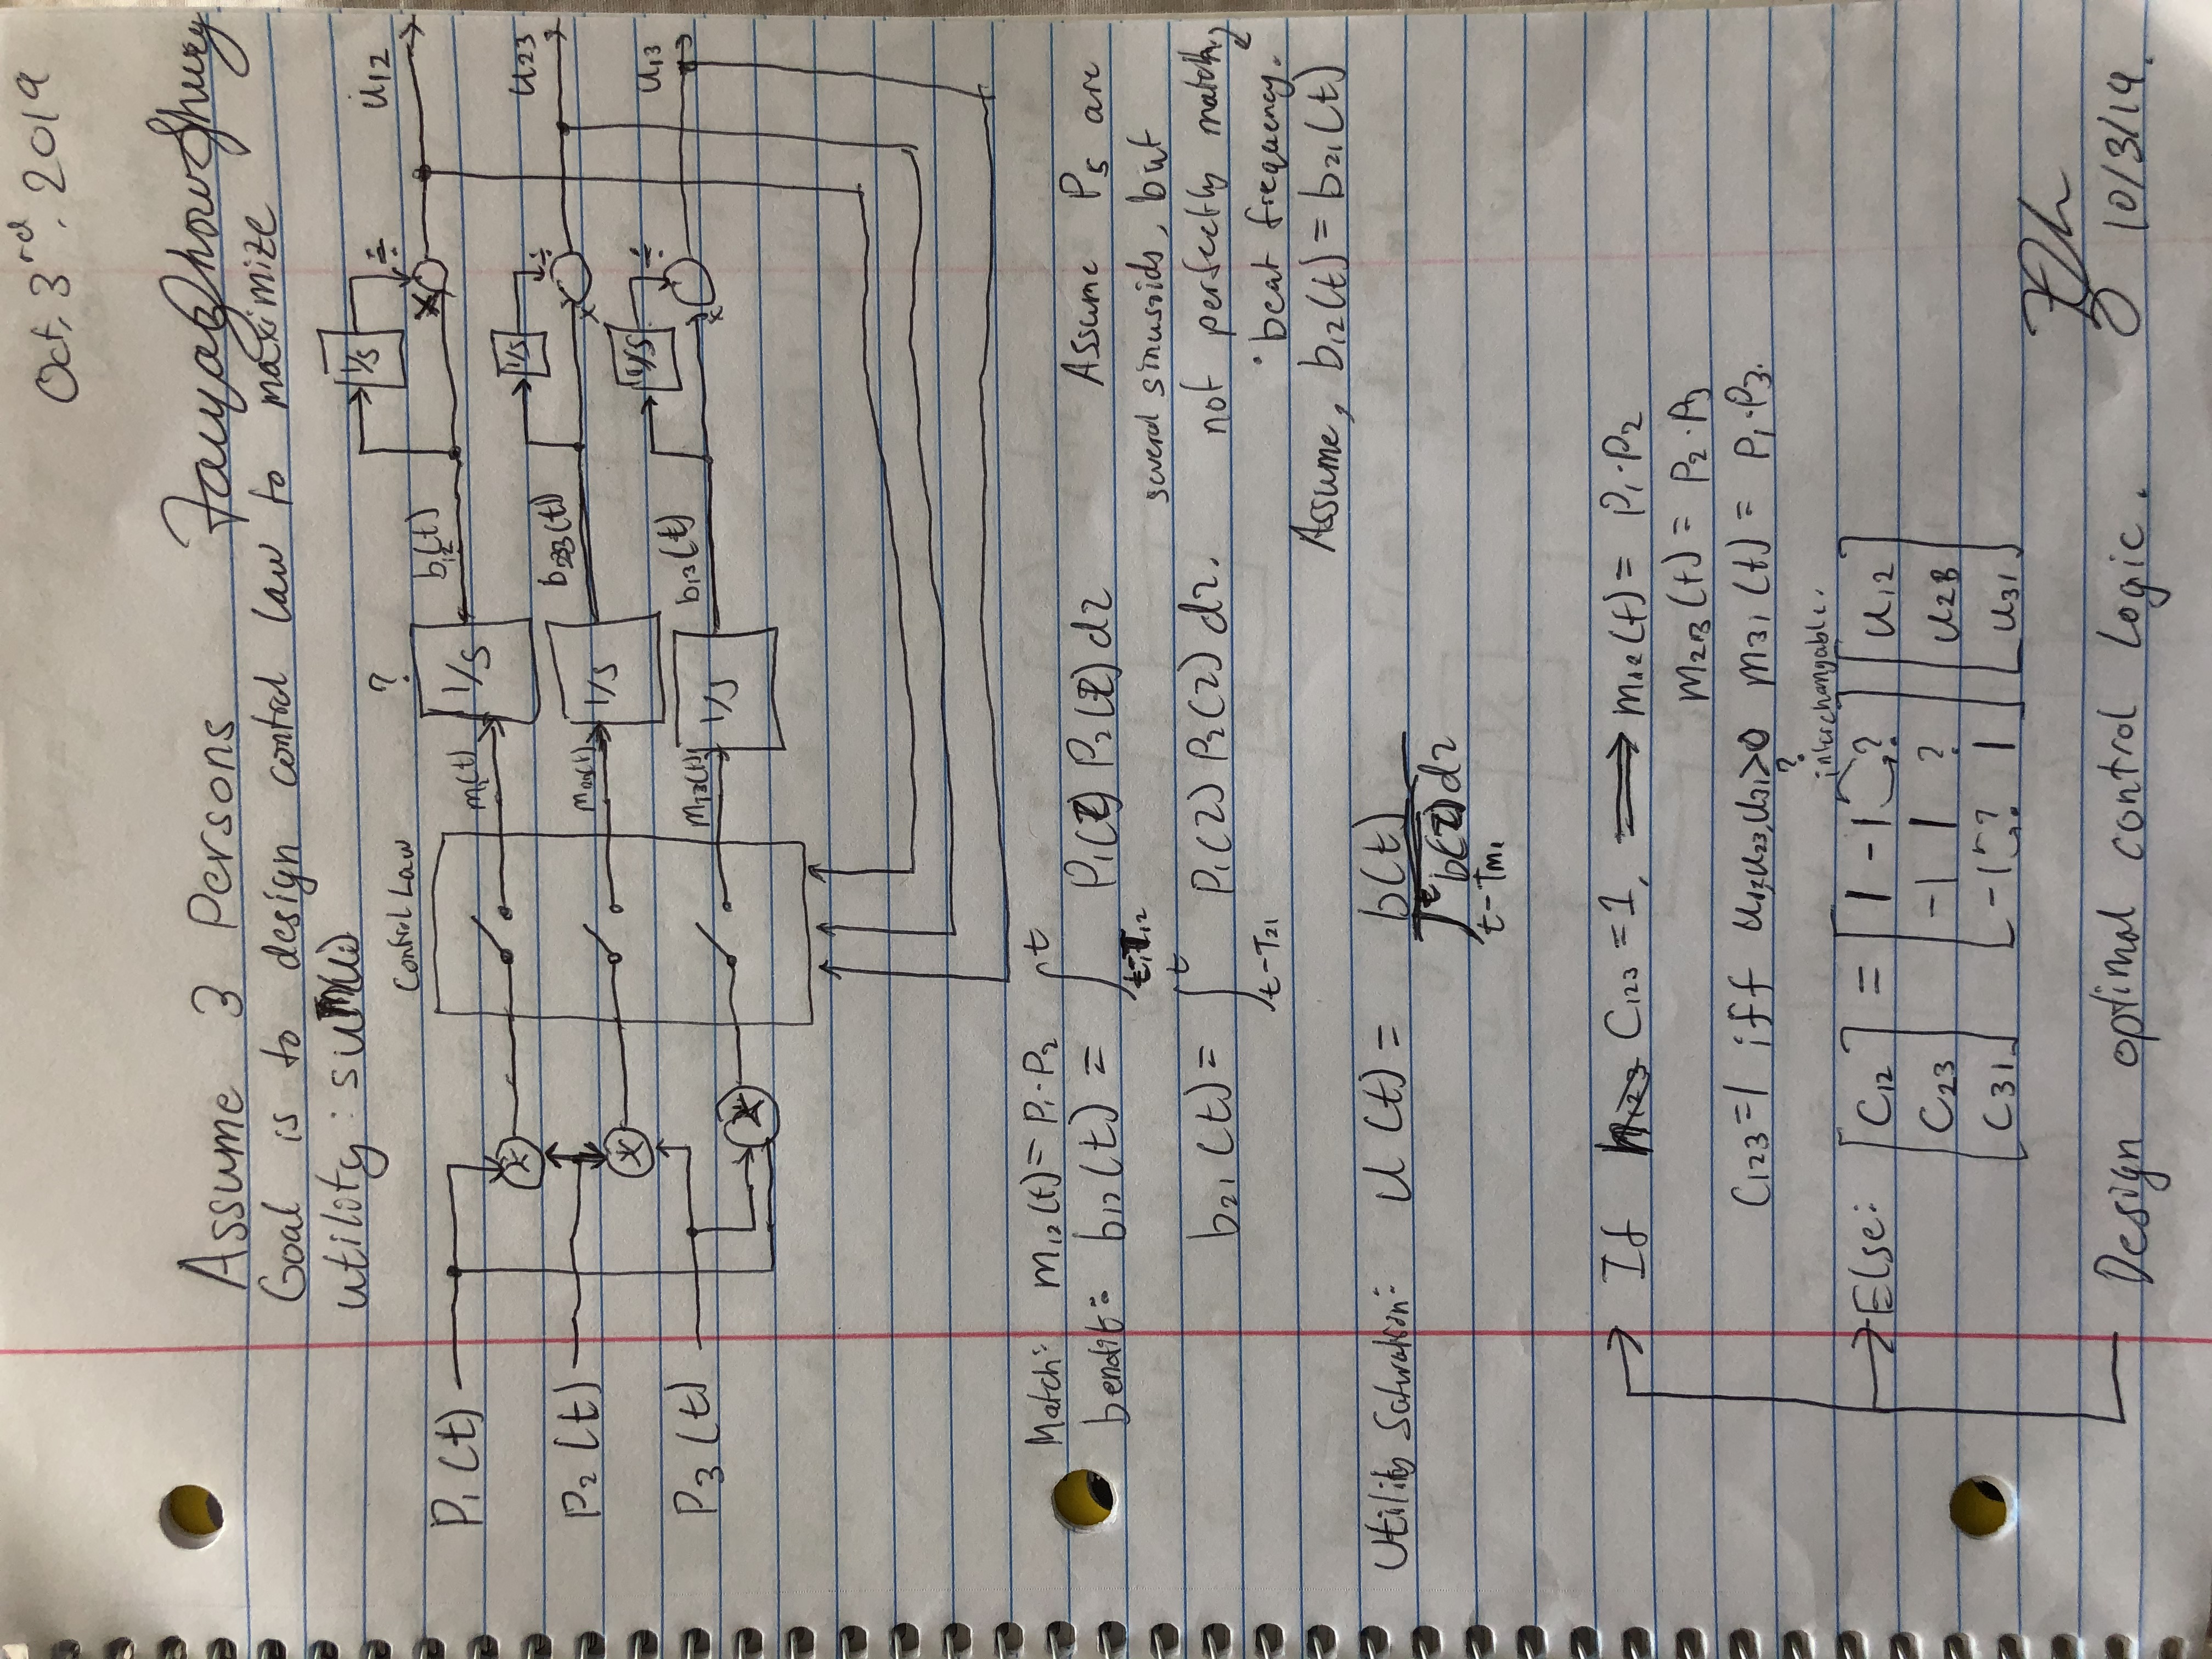 Oct, 3rd, 2019
Assume 3 Persons
Goal is to design control law to maximize
utility: sum(ui)
Control Law
?
P1(t)
P2(t)
P3(t)
×
×
×
m12(t)
m23(t)
m13(t)
1/s
1/s
1/s
b12(t)
b23(t)
b13(t)
1/s
1/s
1/s
÷
÷
÷
×
×
×
u12
u23
u13
Match: m12(t) = P1·P2
b12(t) = ∫ t t-T12 P1(z) P2(z) dz
Assume Ps are
several sinusoids, but
b21(t) = ∫ t t-T21 P1(z) P2(z) dz.
not perfectly matching
beat frequency.
Assume, b12(t) = b21(t)
Utility Saturation: u(t) = b(t) / ∫ t t-Tm b(z) dz
If C123 = 1, ⟹ m12(t) = P1·P2
m23(t) = P2·P3
C123=1 iff u12,u23,u31>0 m31(t) = P1·P3.
?
interchangable.
Else: [C12 C23 C31] = [1 -1 ? -1 1 ? -1 ? 1] [u12 u23 u31]
Design optimal control Logic.
10/3/19.